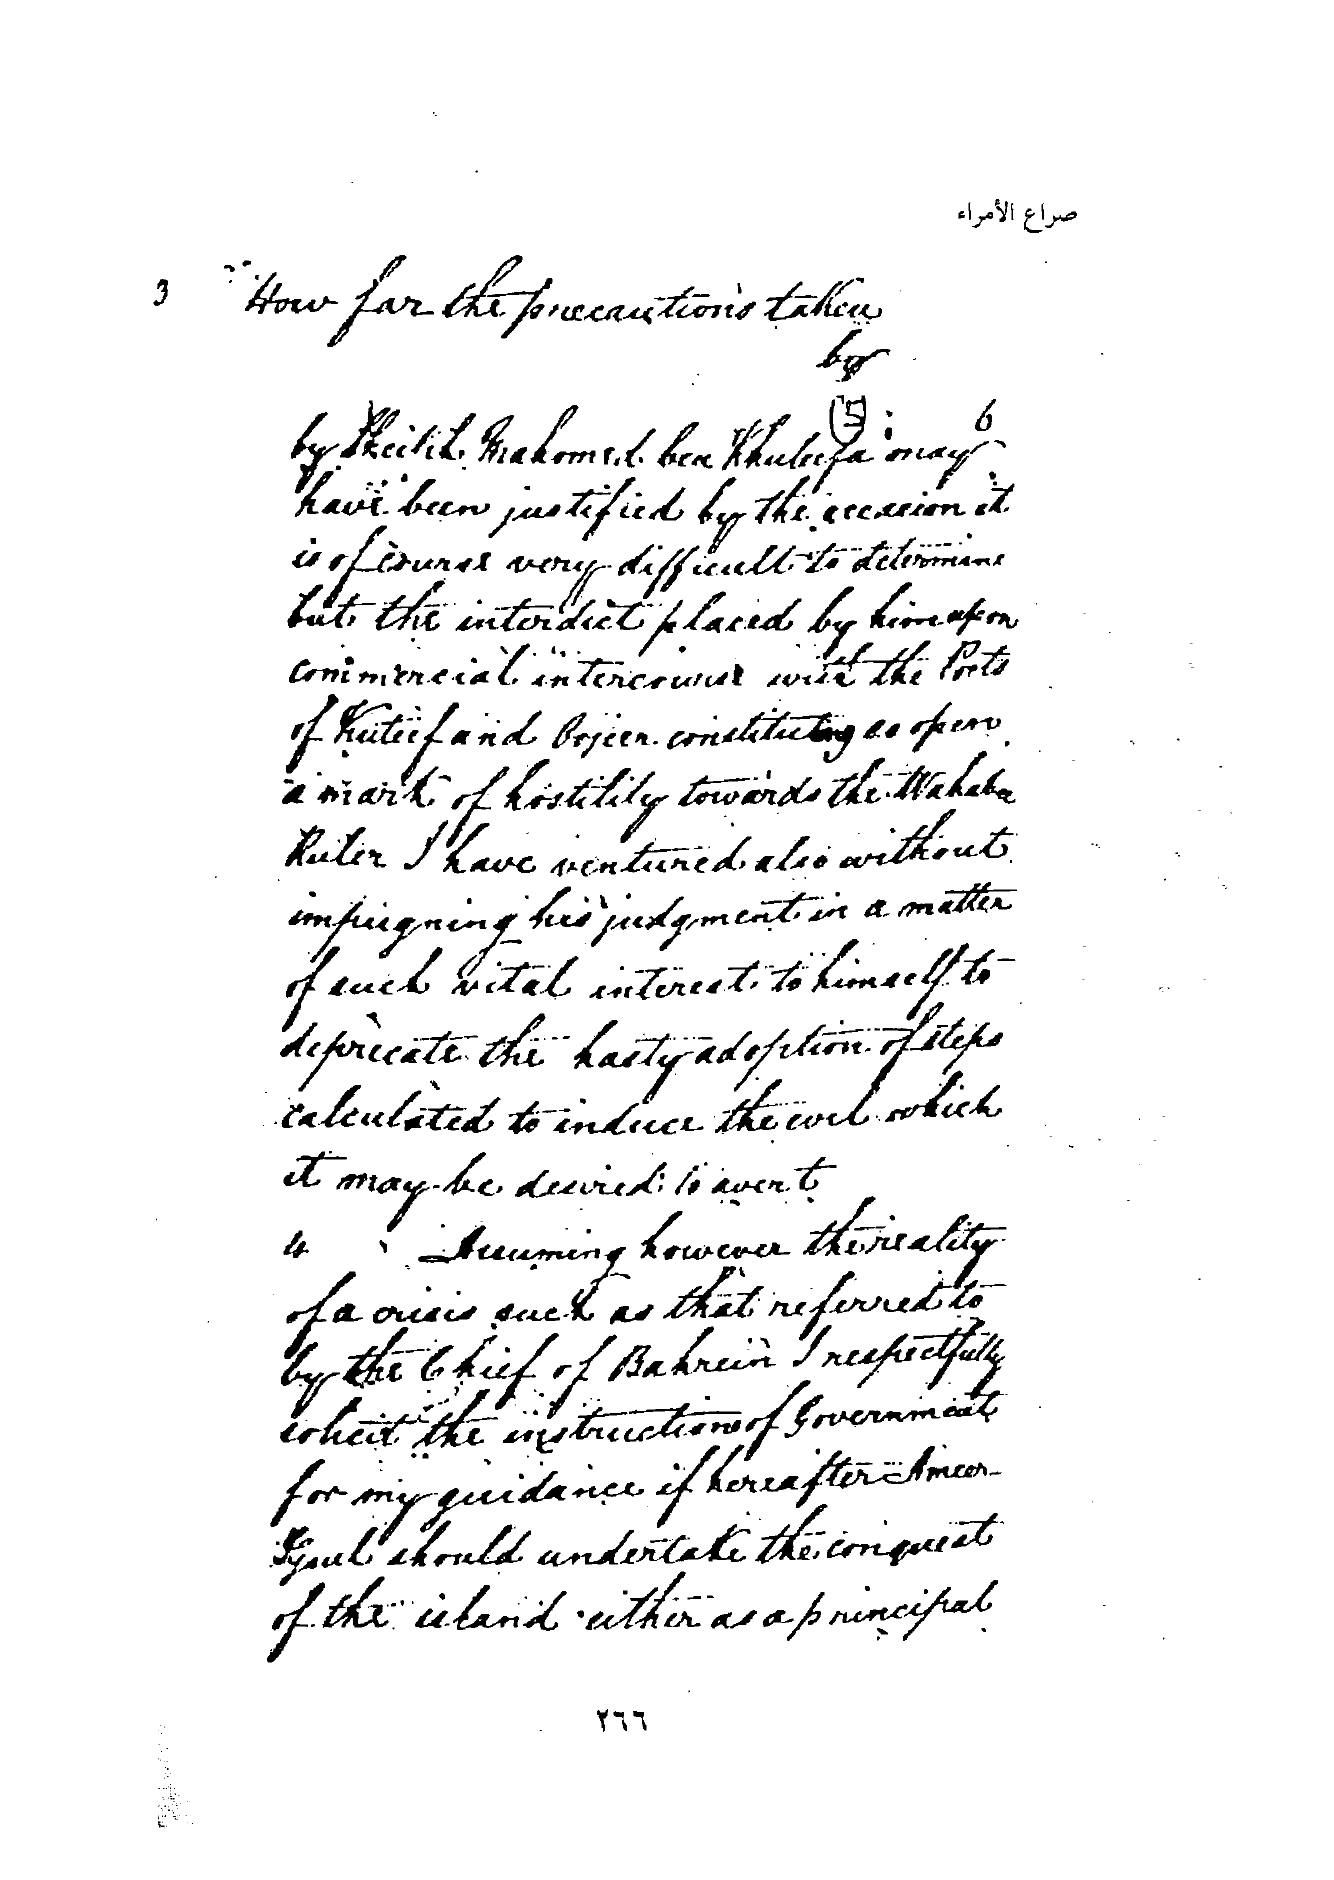 صراع الأمراء
3 How far the precautions taken
by
5 6
by Sheikh Mahomed ben Khuleefa may
have been justified by the occasion it
is of course very difficult to determine
but the interdict placed by him upon
commercial intercourse with the Ports
of Kuteef and Oojeer constituting so open
a mark of hostility towards the Wahabee
Ruler I have ventured also without
impugning his judgment in a matter
of such vital interest to himself to
deprecate the hasty adoption of steps
calculated to induce the evil which
it may be desired to avert
4 Assuming however the reality
of a crisis such as that referred to
by the Chief of Bahrein I respectfully
solicit the instructions of Government
for my guidance if hereafter Ameer
Fysul should undertake the conquest
of the island either as a principal
٢٦٦